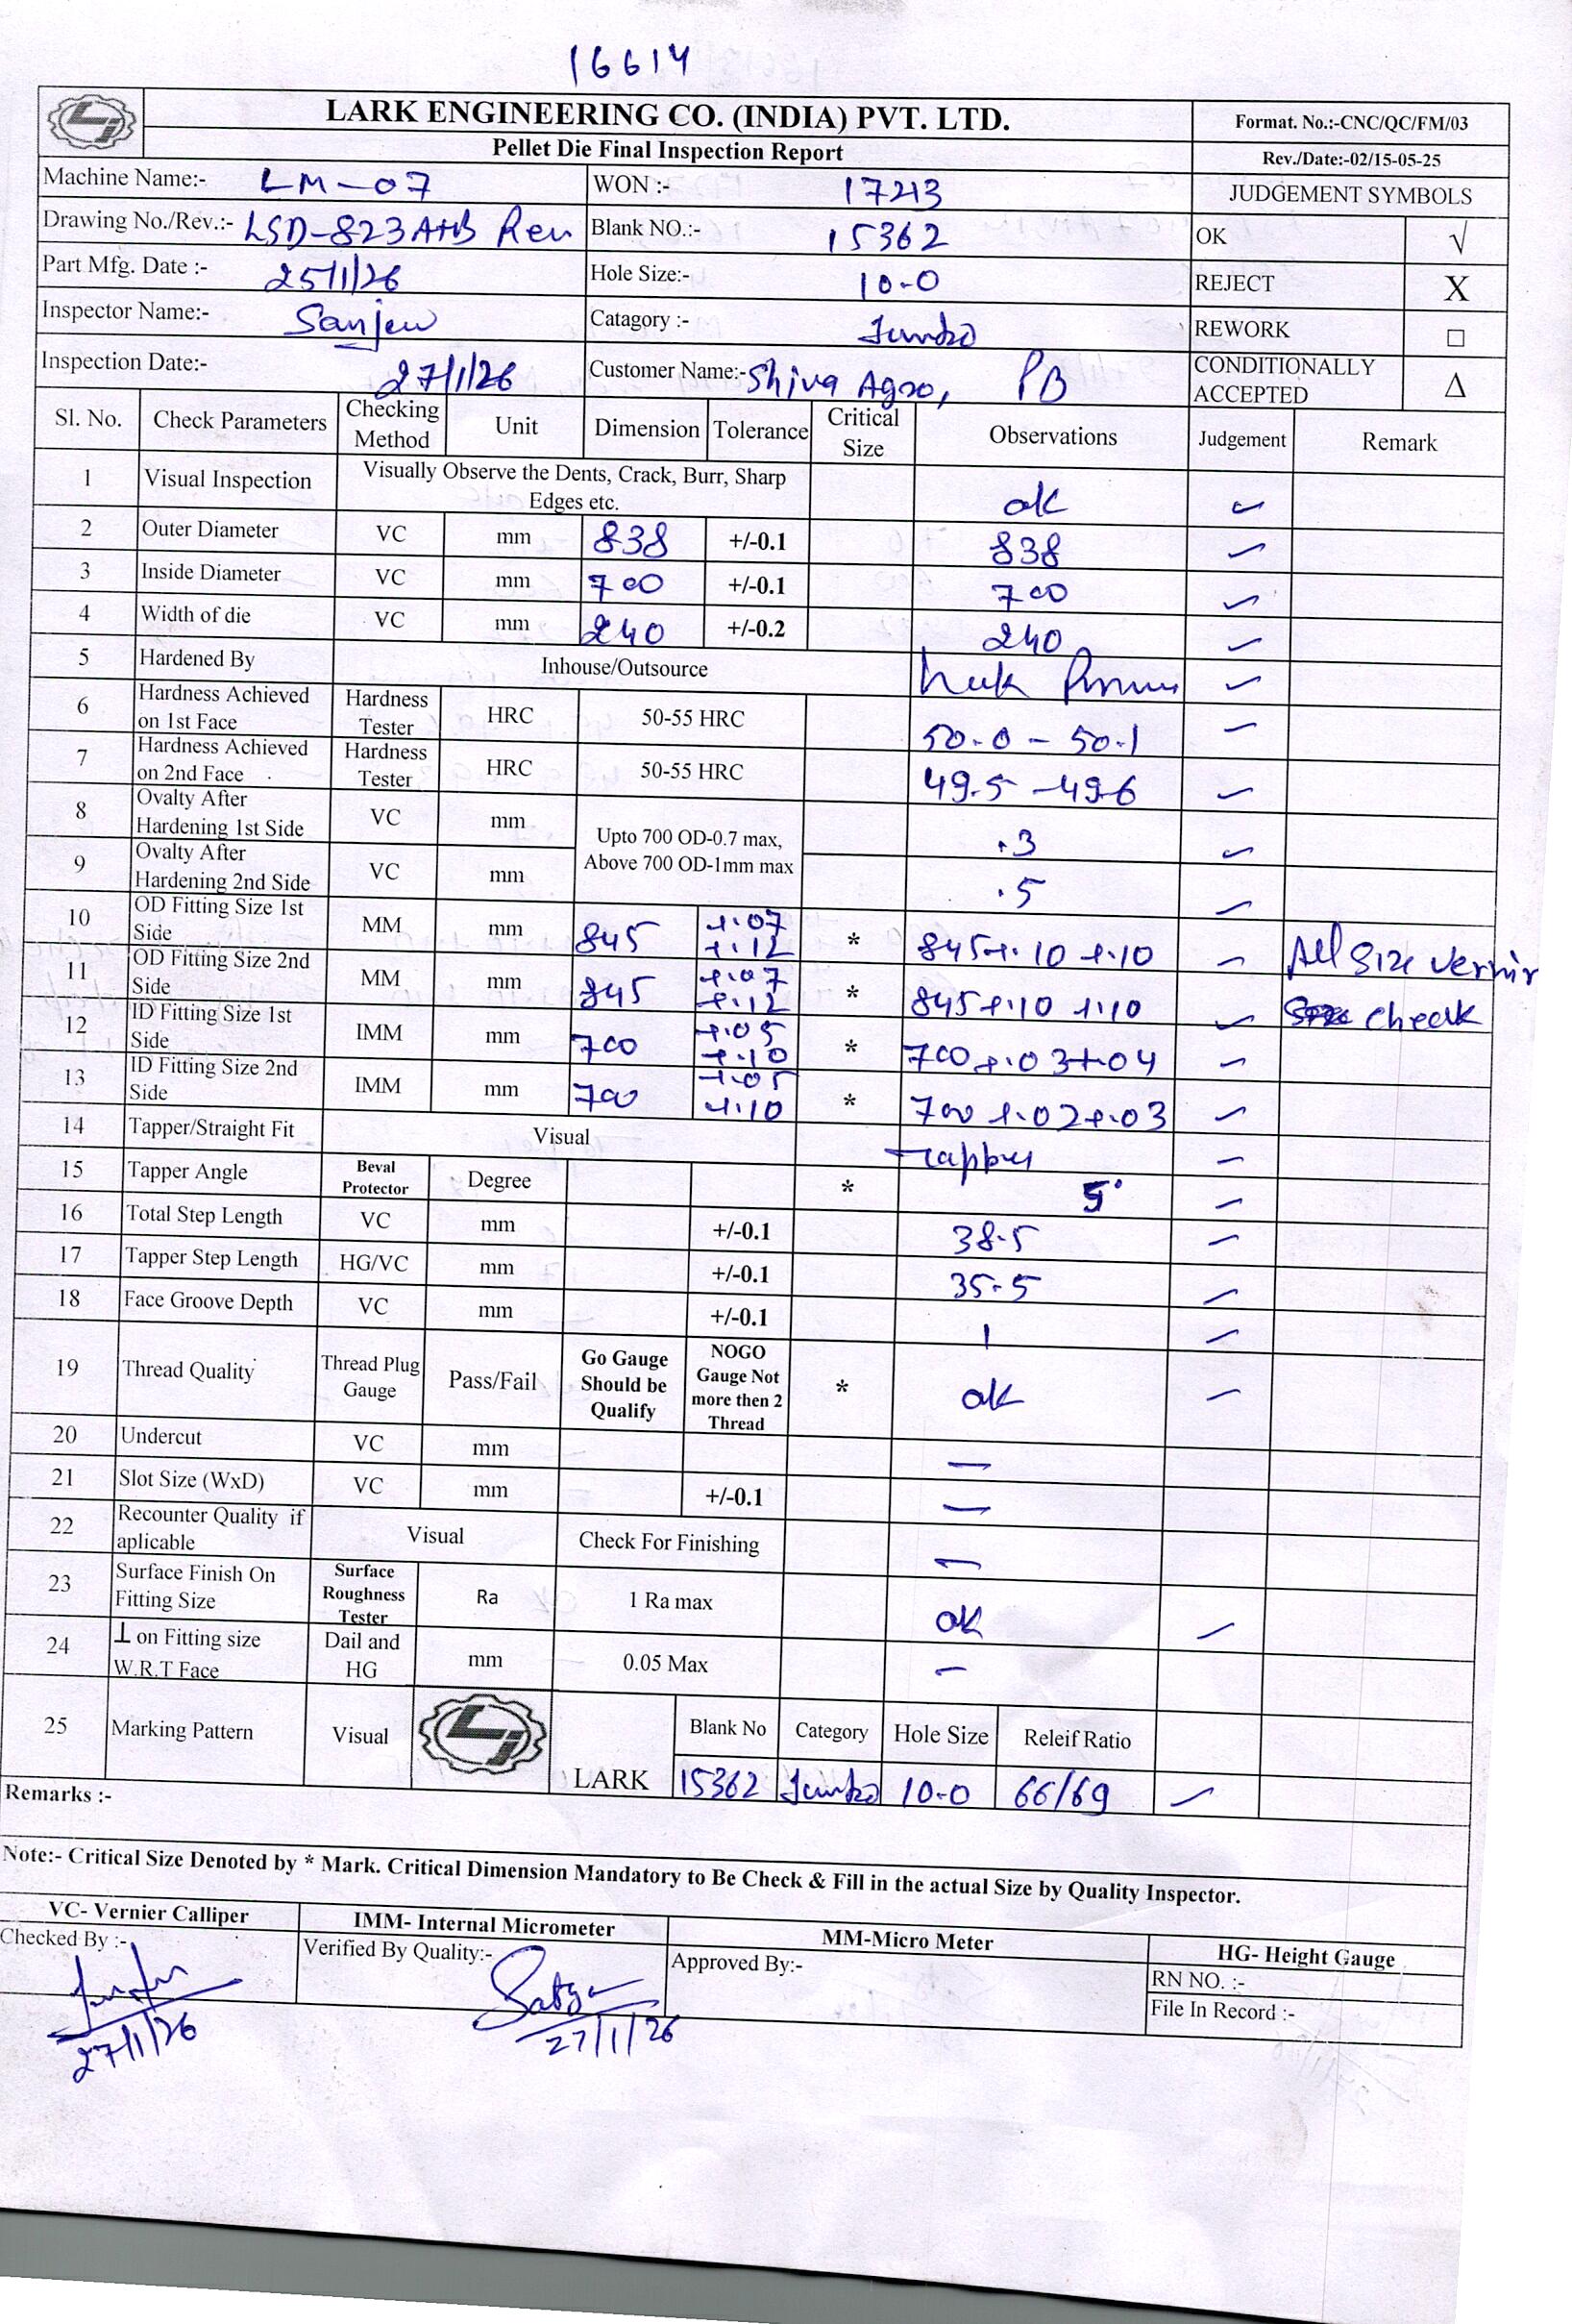 16614
LARK ENGINEERING CO. (INDIA) PVT. LTD.
Format. No.:-CNC/QC/FM/03
Pellet Die Final Inspection Report
Rev./Date:-02/15-05-25
Machine Name:- LM-07 WON :- 17213 JUDGEMENT SYMBOLS
Drawing No./Rev.:- LSD-823A+B Rev Blank NO.:- 15362 OK √
Part Mfg. Date :- 25/1/26 Hole Size:- 10.0 REJECT X
Inspector Name:- Sanjew Catagory :- Jumbo REWORK □
Inspection Date:- 27/1/26 Customer Name:- Shiva Agro, PB CONDITIONALLY ACCEPTED Δ
Sl. No. Check Parameters Checking Method Unit Dimension Tolerance Critical Size Observations Judgement Remark
1 Visual Inspection Visually Observe the Dents, Crack, Burr, Sharp Edges etc. ok ✓
2 Outer Diameter VC mm 838 +/-0.1 838 ✓
3 Inside Diameter VC mm 700 +/-0.1 700 ✓
4 Width of die VC mm 240 +/-0.2 240 ✓
5 Hardened By Inhouse/Outsource ✓
6 Hardness Achieved on 1st Face Hardness Tester HRC 50-55 HRC 50.0 - 50.1 ✓
7 Hardness Achieved on 2nd Face Hardness Tester HRC 50-55 HRC 49.5 - 49.6 ✓
8 Ovalty After Hardening 1st Side VC mm Upto 700 OD-0.7 max, Above 700 OD-1mm max .3 ✓
9 Ovalty After Hardening 2nd Side VC mm .5 ✓
10 OD Fitting Size 1st Side MM mm 845 +.07 +.12 * 845+.10 +.10 ✓ All Size vernir
11 OD Fitting Size 2nd Side MM mm 845 +.07 +.12 * 845+.10 +.10 ✓ check
12 ID Fitting Size 1st Side IMM mm 700 +.05 +.10 * 700+.03+.04 ✓
13 ID Fitting Size 2nd Side IMM mm 700 +.05 +.10 * 700 +.02+.03 ✓
14 Tapper/Straight Fit Visual Tapper ✓
15 Tapper Angle Beval Protector Degree * 5° ✓
16 Total Step Length VC mm +/-0.1 38.5 ✓
17 Tapper Step Length HG/VC mm +/-0.1 35.5 ✓
18 Face Groove Depth VC mm +/-0.1 1 ✓
19 Thread Quality Thread Plug Gauge Pass/Fail Go Gauge Should be Qualify NOGO Gauge Not more then 2 Thread * ok ✓
20 Undercut VC mm —
21 Slot Size (WxD) VC mm +/-0.1 —
22 Recounter Quality if aplicable Visual Check For Finishing —
23 Surface Finish On Fitting Size Surface Roughness Tester Ra 1 Ra max ok ✓
24 ⊥ on Fitting size W.R.T Face Dail and HG mm 0.05 Max —
25 Marking Pattern Visual LARK Blank No Category Hole Size Releif Ratio
15362 Jumbo 10.0 66/69 ✓
Remarks :-
Note:- Critical Size Denoted by * Mark. Critical Dimension Mandatory to Be Check & Fill in the actual Size by Quality Inspector.
VC- Vernier Calliper IMM- Internal Micrometer MM-Micro Meter HG- Height Gauge
Checked By :- Verified By Quality:- Approved By:- RN NO. :-
File In Record :-
27/1/26 27/1/26